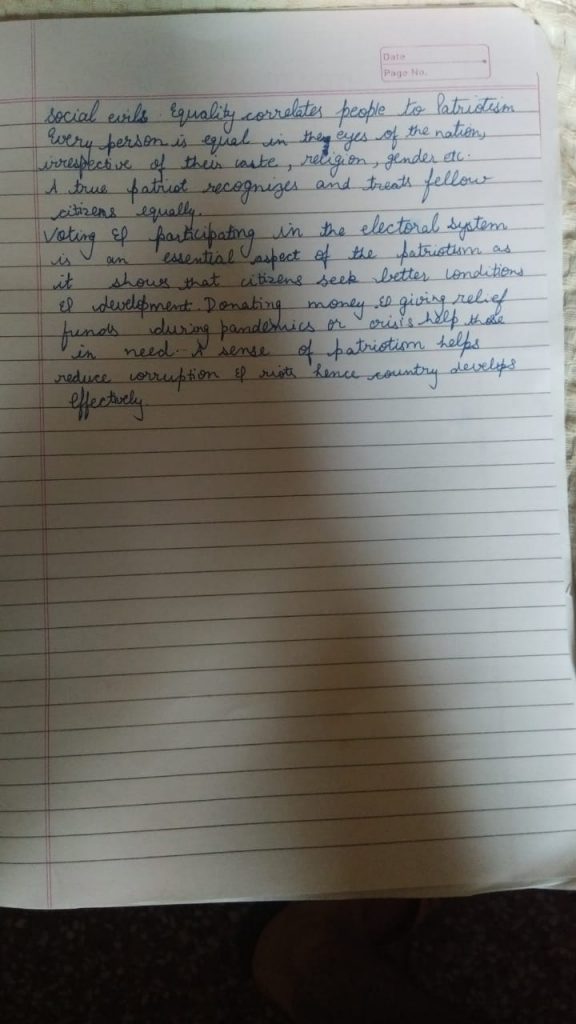 Date
Page No.
social evils. Equality correlates people to Patriotism
Every person is equal in the eyes of the nation,
irrespective of their caste, religion, gender etc.
A true patriot recognizes and treats fellow
citizens equally.
Voting & participating in the electoral system
is an essential aspect of the patriotism as
it shows that citizens seek better conditions
& development. Donating money & giving relief
funds during pandemics or crisis help those
in need. A sense of patriotism helps
reduce corruption & riots hence country develops
effectively